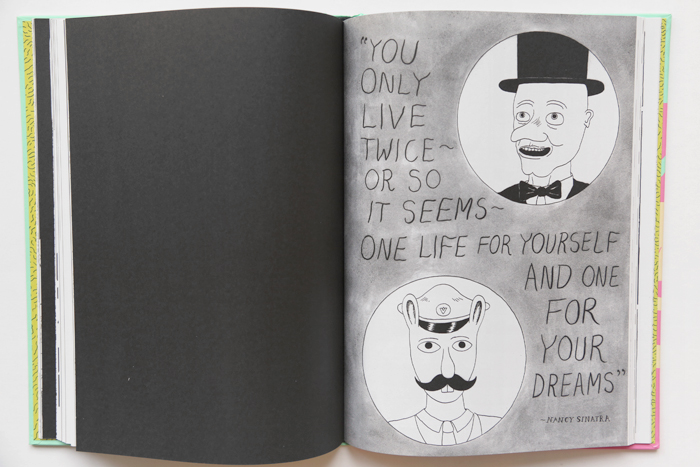 "YOU
ONLY
LIVE
TWICE~
OR SO
IT SEEMS~
ONE LIFE FOR YOURSELF
AND ONE
FOR
YOUR
DREAMS"
~NANCY SINATRA